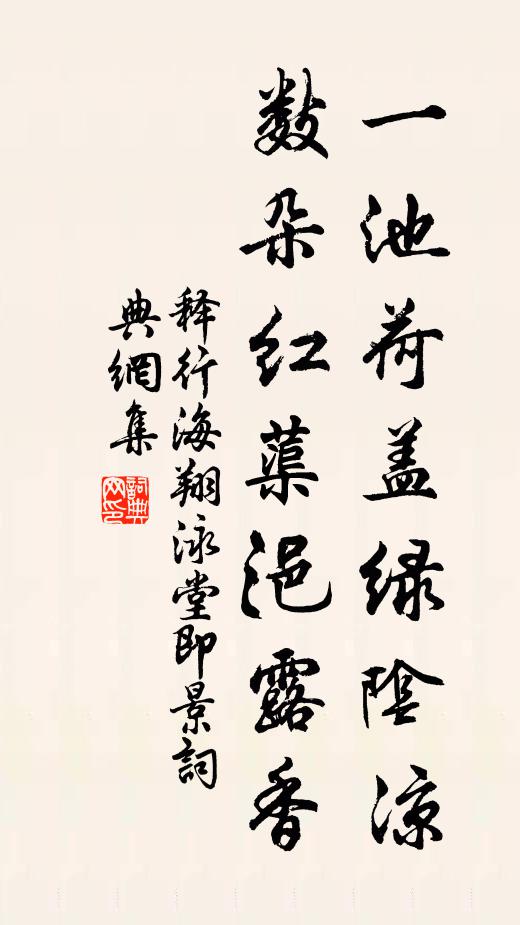 一池荷盖绿陰凉
数朵红蕖浥露香
释行海翔泳堂即景詞
典網集
詞典
网印